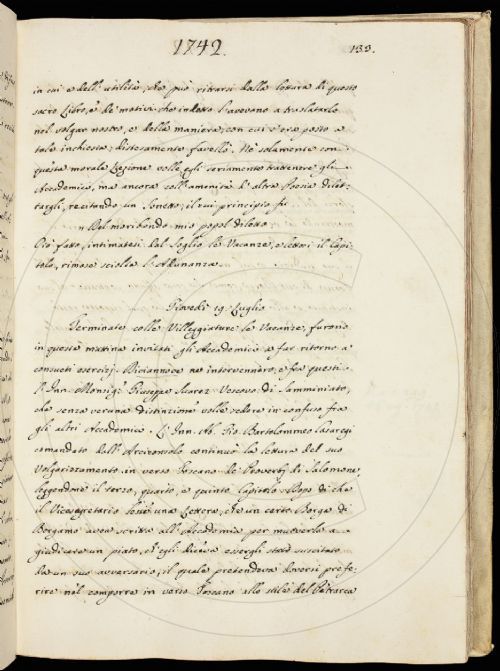 1742.
133.
in cui e dell' utilità, che può ritrarsi dalla lettura di questo
sacro Libro, e de' motivi che indotto l'avevano a traslatarlo
nel volgar nostro, e della maniera, con cui s'era posto a
tale inchiesta, distesamente favellò. Nè solamente con
questa morale Lezione volle egli seriamente trattenere gli
Accademici, ma ancora coll'amenità d'altra Poesia dilet-
targli, recitando un Sonetto, il cui principio fu
Del moribondo mio popol diletto
Ciò fatto, intimatesi dal Soglio le Vacanze, e lettori il Capi-
tolo, rimase sciolta l'Adunanza.
Giovedì 19. Luglio
Terminate colle Villeggiature le Vacanze, furono
in questa mattina invitati gli Accademici a far ritorno a
consueti esercizj. Diciannove ne intervennero, e fra questi
l'Inn. Monsig.r Giuseppe Suarez Vescovo di Samminiato,
che senza veruna distinzione volle sedere in confuso fra
gli altri Accademici. L'Inn. Ab. Gio. Bartolommeo Casaregi
comandato dall'Arciconsolo continuò la lettura del suo
Volgarizzamento in verso Toscano de' Proverbj di Salomone,
leggendone il terzo, quarto, e quinto Capitolo. Dopo di che
il Vicesegretario lesse una Lettera, che un certo Borga di
Bergamo avea scritta all'Accademia per muoverla a
giudicare un piato, ch'egli diceva essergli stato suscitato
da un suo avversario, il quale pretendeva doversi prefe-
rire nel comporre in verso Toscano allo stile del Petrarca